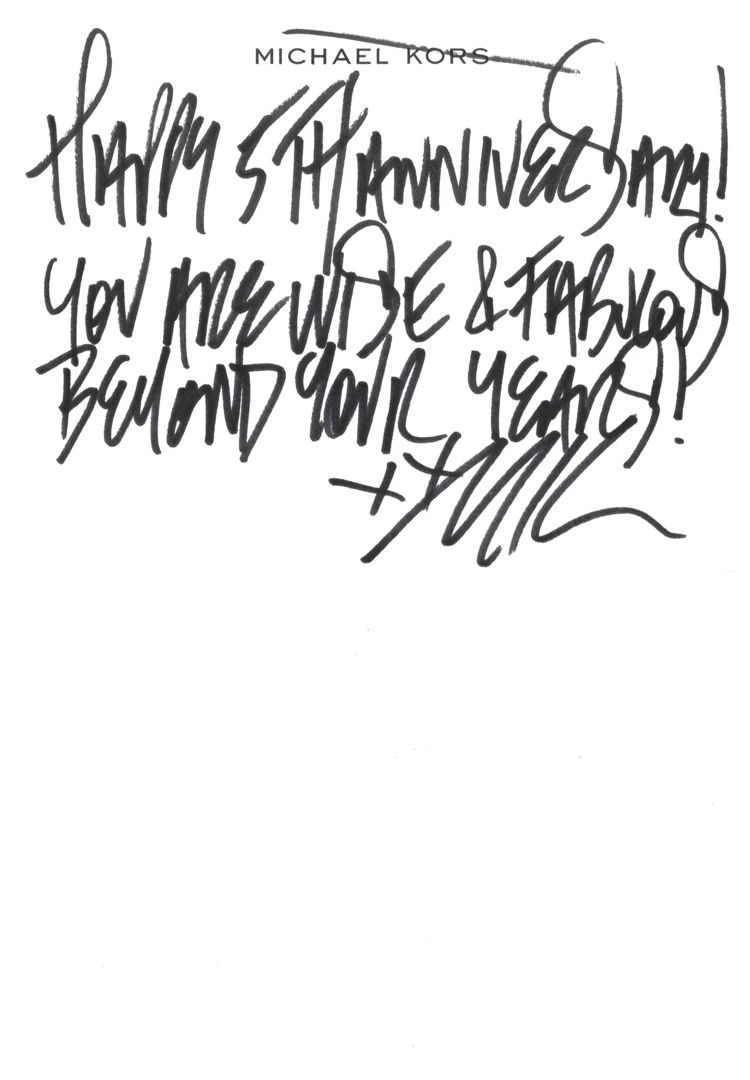 MICHAEL KORS
HAPPY 5TH ANNIVERSARY!
YOU ARE WISE & FABULOUS
BEYOND YOUR YEARS!!